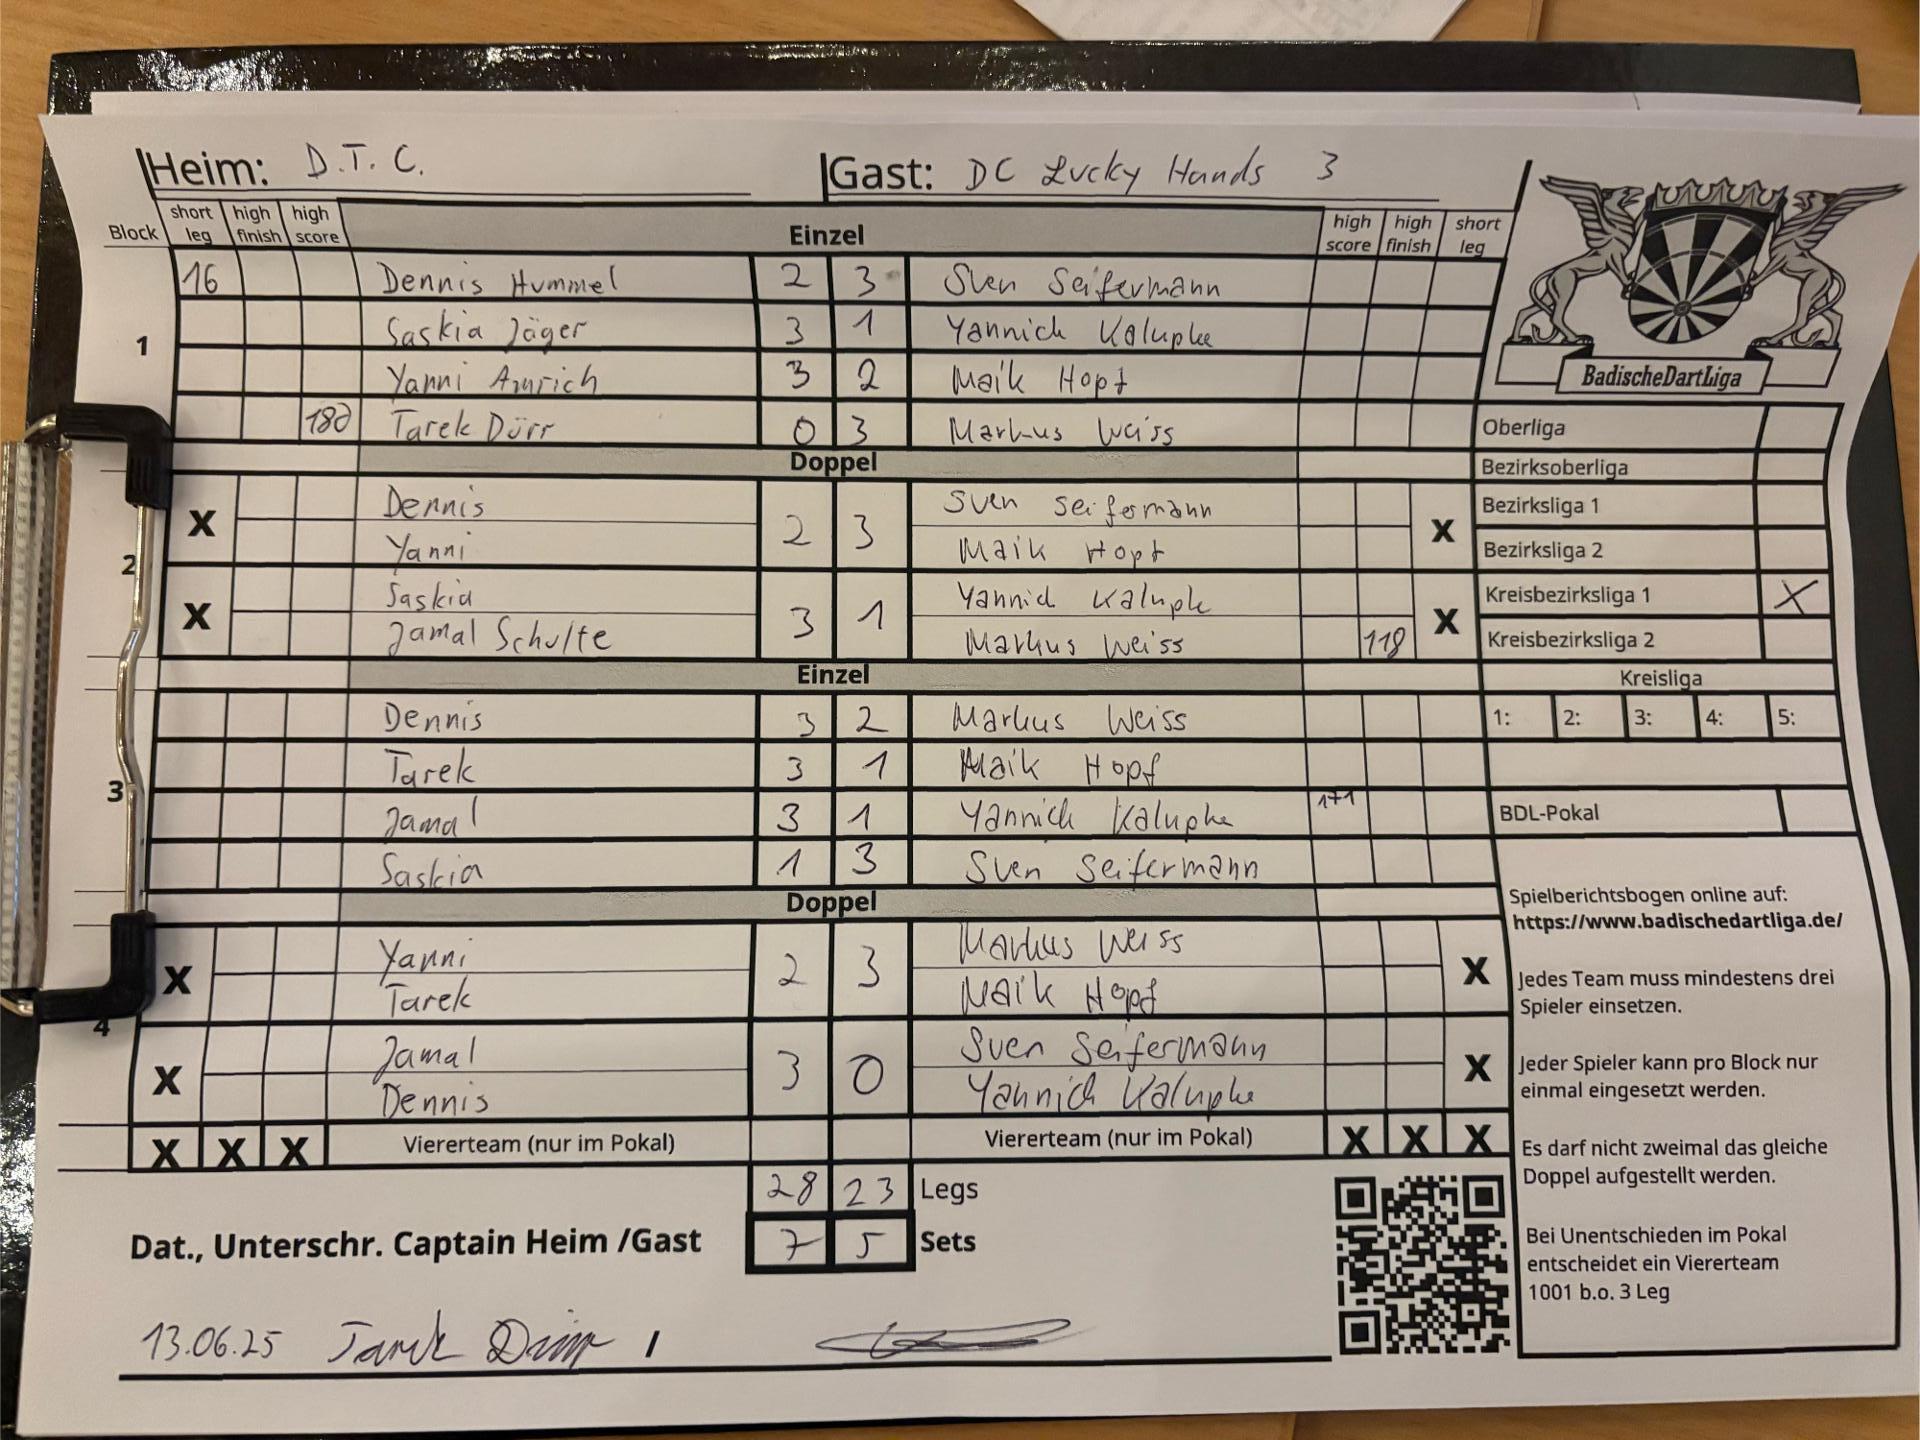 Heim: D.T.C. Gast: DC Lucky Hands 3
Block short leg high finish high score Einzel high score high finish short leg
1
16 Dennis Hummel 2 3 Sven Seifermann
Saskia Jäger 3 1 Yannich Kalupke
Yanni Amrich 3 2 Maik Hopf
180 Tarek Dürr 0 3 Markus Weiss
Doppel
2
X Dennis 2 3 Sven Seifermann X
Yanni Maik Hopf
X Saskia 3 1 Yannich Kalupke X
Jamal Schulte Markus Weiss 118
Einzel
3
Dennis 3 2 Markus Weiss
Tarek 3 1 Maik Hopf
Jamal 3 1 Yannich Kalupke 171
Saskia 1 3 Sven Seifermann
Doppel
4
X Yanni 2 3 Markus Weiss X
Tarek Maik Hopf
X Jamal 3 0 Sven Seifermann X
Dennis Yannich Kalupke
X X X Viererteam (nur im Pokal) Viererteam (nur im Pokal) X X X
28 23 Legs
Dat., Unterschr. Captain Heim /Gast 7 5 Sets
13.06.25 Tarek Dürr /
BadischeDartLiga
Oberliga
Bezirksoberliga
Bezirksliga 1
Bezirksliga 2
Kreisbezirksliga 1 X
Kreisbezirksliga 2
Kreisliga
1: 2: 3: 4: 5:
BDL-Pokal
Spielberichtsbogen online auf:
https://www.badischedartliga.de/
Jedes Team muss mindestens drei
Spieler einsetzen.
Jeder Spieler kann pro Block nur
einmal eingesetzt werden.
Es darf nicht zweimal das gleiche
Doppel aufgestellt werden.
Bei Unentschieden im Pokal
entscheidet ein Viererteam
1001 b.o. 3 Leg